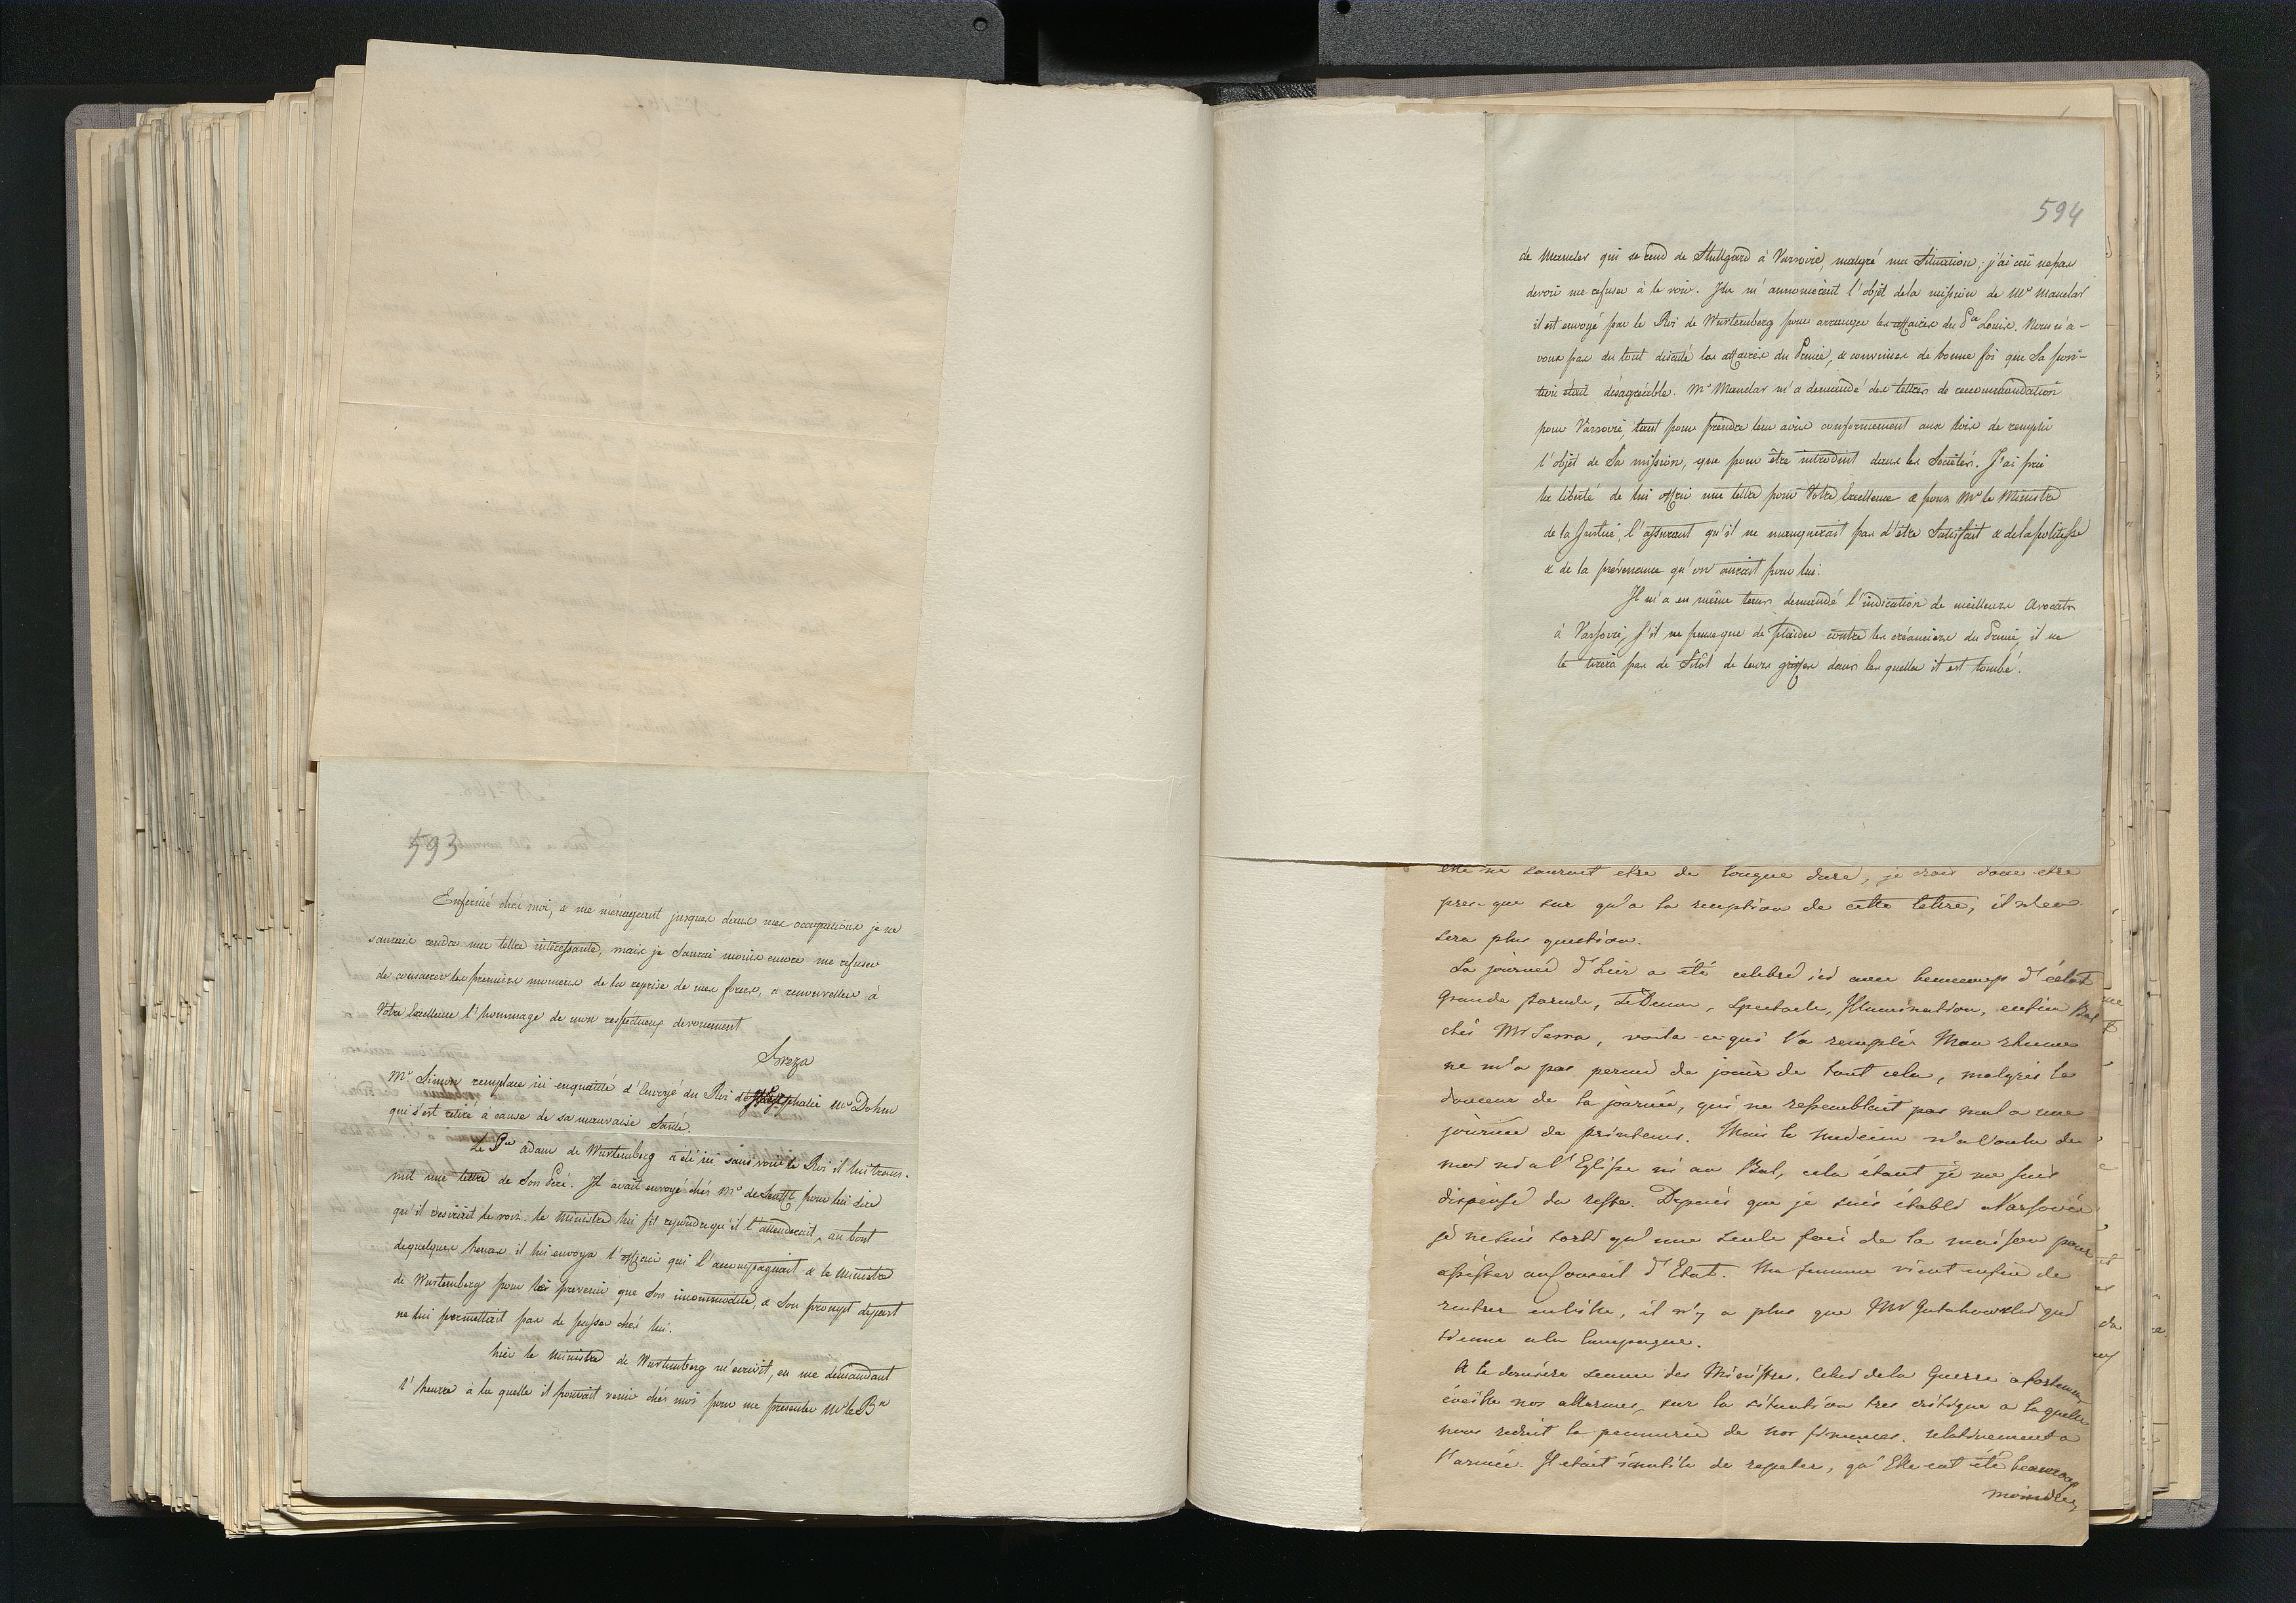 593
Enfermé chés moi, & me ménageant jusques dans mes occupations je ne
saurais rendre ma lettre intéressante, mais je saurai moins encore me refuser
de consacrer les premiers momens de la reprise de mes forces, a renouveller à
Votre Excellence l'hommage de mon respectueux dévouement
Breza
Mr. Simon remplace ici enqualité d'Envoyé du Roi de Westphalie Mr Dohm
qui s'est retiré a cause de sa mauvaise Santé.
Le Pce adam de Wurtemberg a été ici sans voir le Roi il lui trans-
mit une lettre de Son Père. Il avait envoyé chés Mr de Senfft pour lui dire
qu'il desirait le voir. le Ministre lui fit repondre qu'il l'attenderait, au bout
dequelques heures il lui envoya l'officier qui l'accompagnait & le Ministre
de Wurtemberg pour les prevenir que Son incommodité, & Son prompt depart
ne lui permettait pas de passer chés lui.
hier le Ministre de Wurtemberg m'écrivit, en me demandant
l'heure à la quelle il pouvait venir chés moi pour me presenter Mr le Bn
594
de Mauclar qui se rend de Stuttgard à Varsovie, malgré ma Situation; j'ai crû nepas
devoir me refuser à le voir. Ils m'annoncèrent l'objet dela mission de Mr Mauclar
il est envoyé par le Roi de Wurtemberg pour arranger les affaires du Pce Louis. Nous n'a-
vons pas du tout discuté les affaires du Prince, & convinmes de bonne foi que Sa posi-
tion était désagréable. Mr Mauclar m'a demandé des lettres de recommandation
pour Varsovie, tant pour prendre leur avis conformement aux loix de remplir
l'objet de Sa mission, que pour être introduit dans les Sociétés. J'ai pris
la liberté de lui offrir une lettre pour Votre Excellence & pour Mr le Ministre
de la Justice, l'assurant qu'il ne manquerait pas d'être Satisfait & delapolitesse
& de la prévenance qu'on aurait pour lui.
Il m'a en même tems demandé l'indication de meilleurs Avocats
à Varsovie, S'il ne pense que de plaider contre les créanciers du Prince, il ne
le tirera pas de Sitôt de leurs griffes dans les quelles il est tombé.
elle ne sauroit etre de longue duré, je crois donc etre
pres-que sur qu'a la reception de cette lettre, il n'en
sera plus question.
La journée d'hier a été celebré ici avec beaucoup d'éclat
Grande parade, TeDeum, Spectacle, Illumination, enfin Bal
chés Mr Serra, voila ce qui l'a remplie. Mon rhume
ne m'a pas permis de jouir de tout cela, malgrès la
douceur de la journée, qui ne ressemblait pas mal a une
journée de printems. Mais le medecin n'a voulu de
moi ni a l'Eglise ni au Bal, cela étant je me suis
dispensé du reste. Depuis que je suis établi a Varsovie
je ne suis sorti qu'une seule fois de la maison pour
assister au Conseil d'Etat. Ma femme vient enfin de
rentrer en ville, il n'y a plus que Mr Gutakowski qui
tienne a la Campagne.
A la derniere seance des Ministres, Celui dela Guerre a fortement
éveillé nos allarmes, sur la situation tres critique a laquelle
nous reduit la penurie de nos finances, relativement a
l'armée. Il était inutile de repeter, qu'Elle eut été beaucoup
moindre,